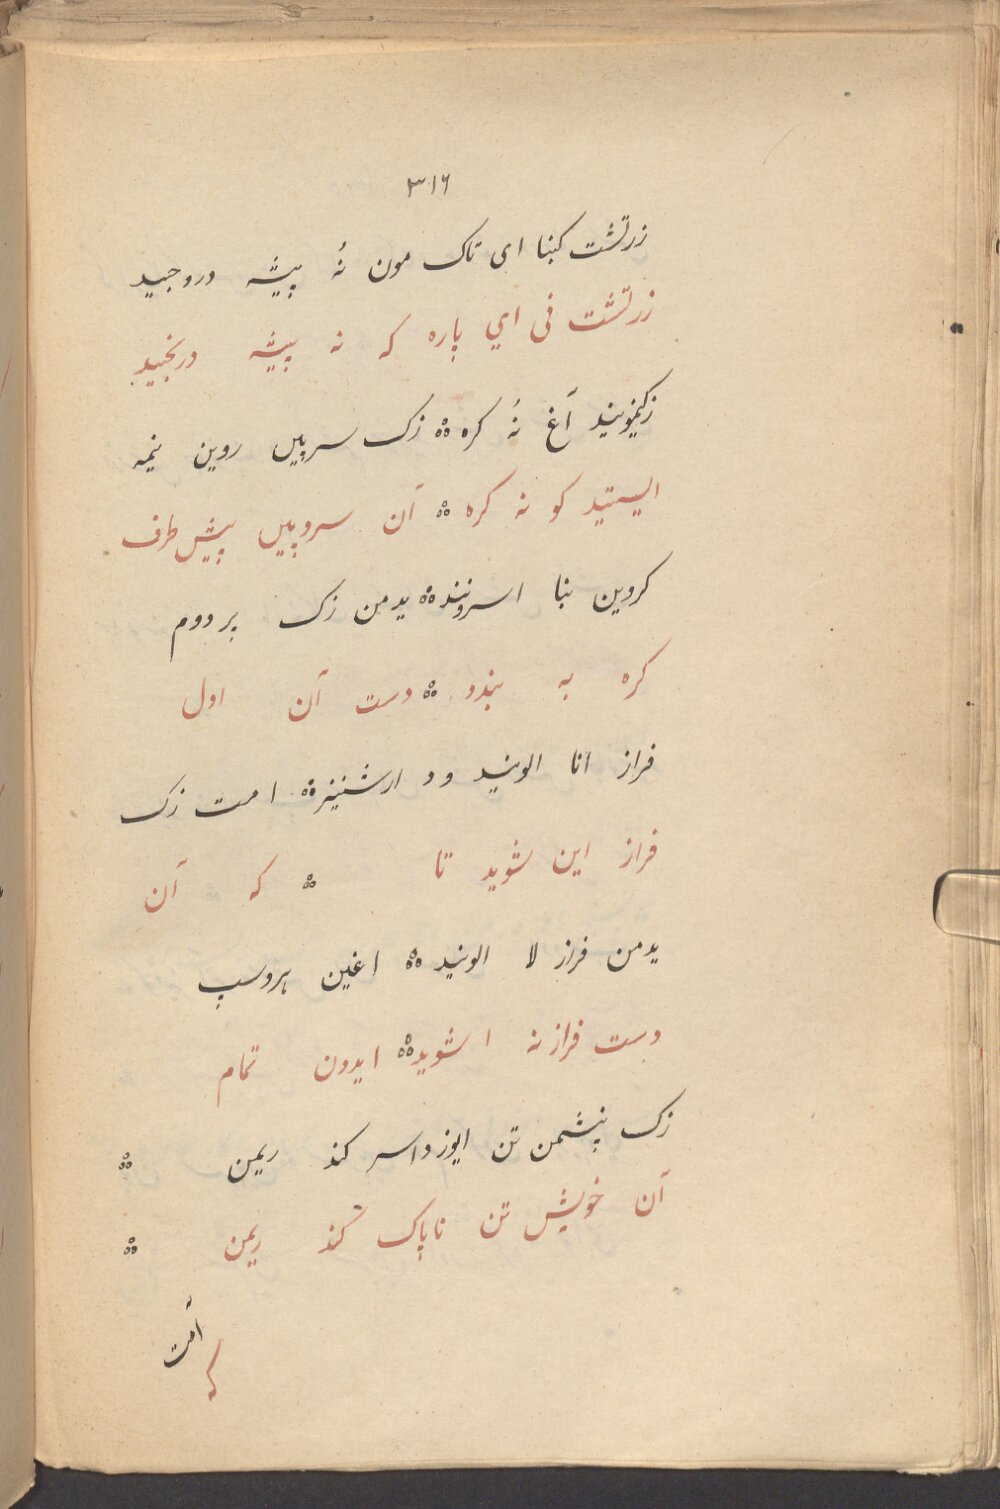 ۳۱۶
زرتشت کبنا ای تاک مون نهٔ پیشه دروجید
زرتشت فی اي پاره که نه پیشه دربخید
زکیمونید آغ نهٔ کره زک سرپس روین نیمه
ایستید کو نه کره آن سروپس پیش طرف
کروین بنا اسرونند یدمن زک بر دوم
کره به بندو دست آن اول
فراز انا الونید ود ارشنیز امت زک
فراز این شوید تا که آن
یدمن فراز لا الونید اغین هروسپ
دست فراز نه ا شوید ایدون تمام
زک پنشمن تن ایوزداسر کند ریمن
آن خویش تن ناپاک کند ریمن
امت
که